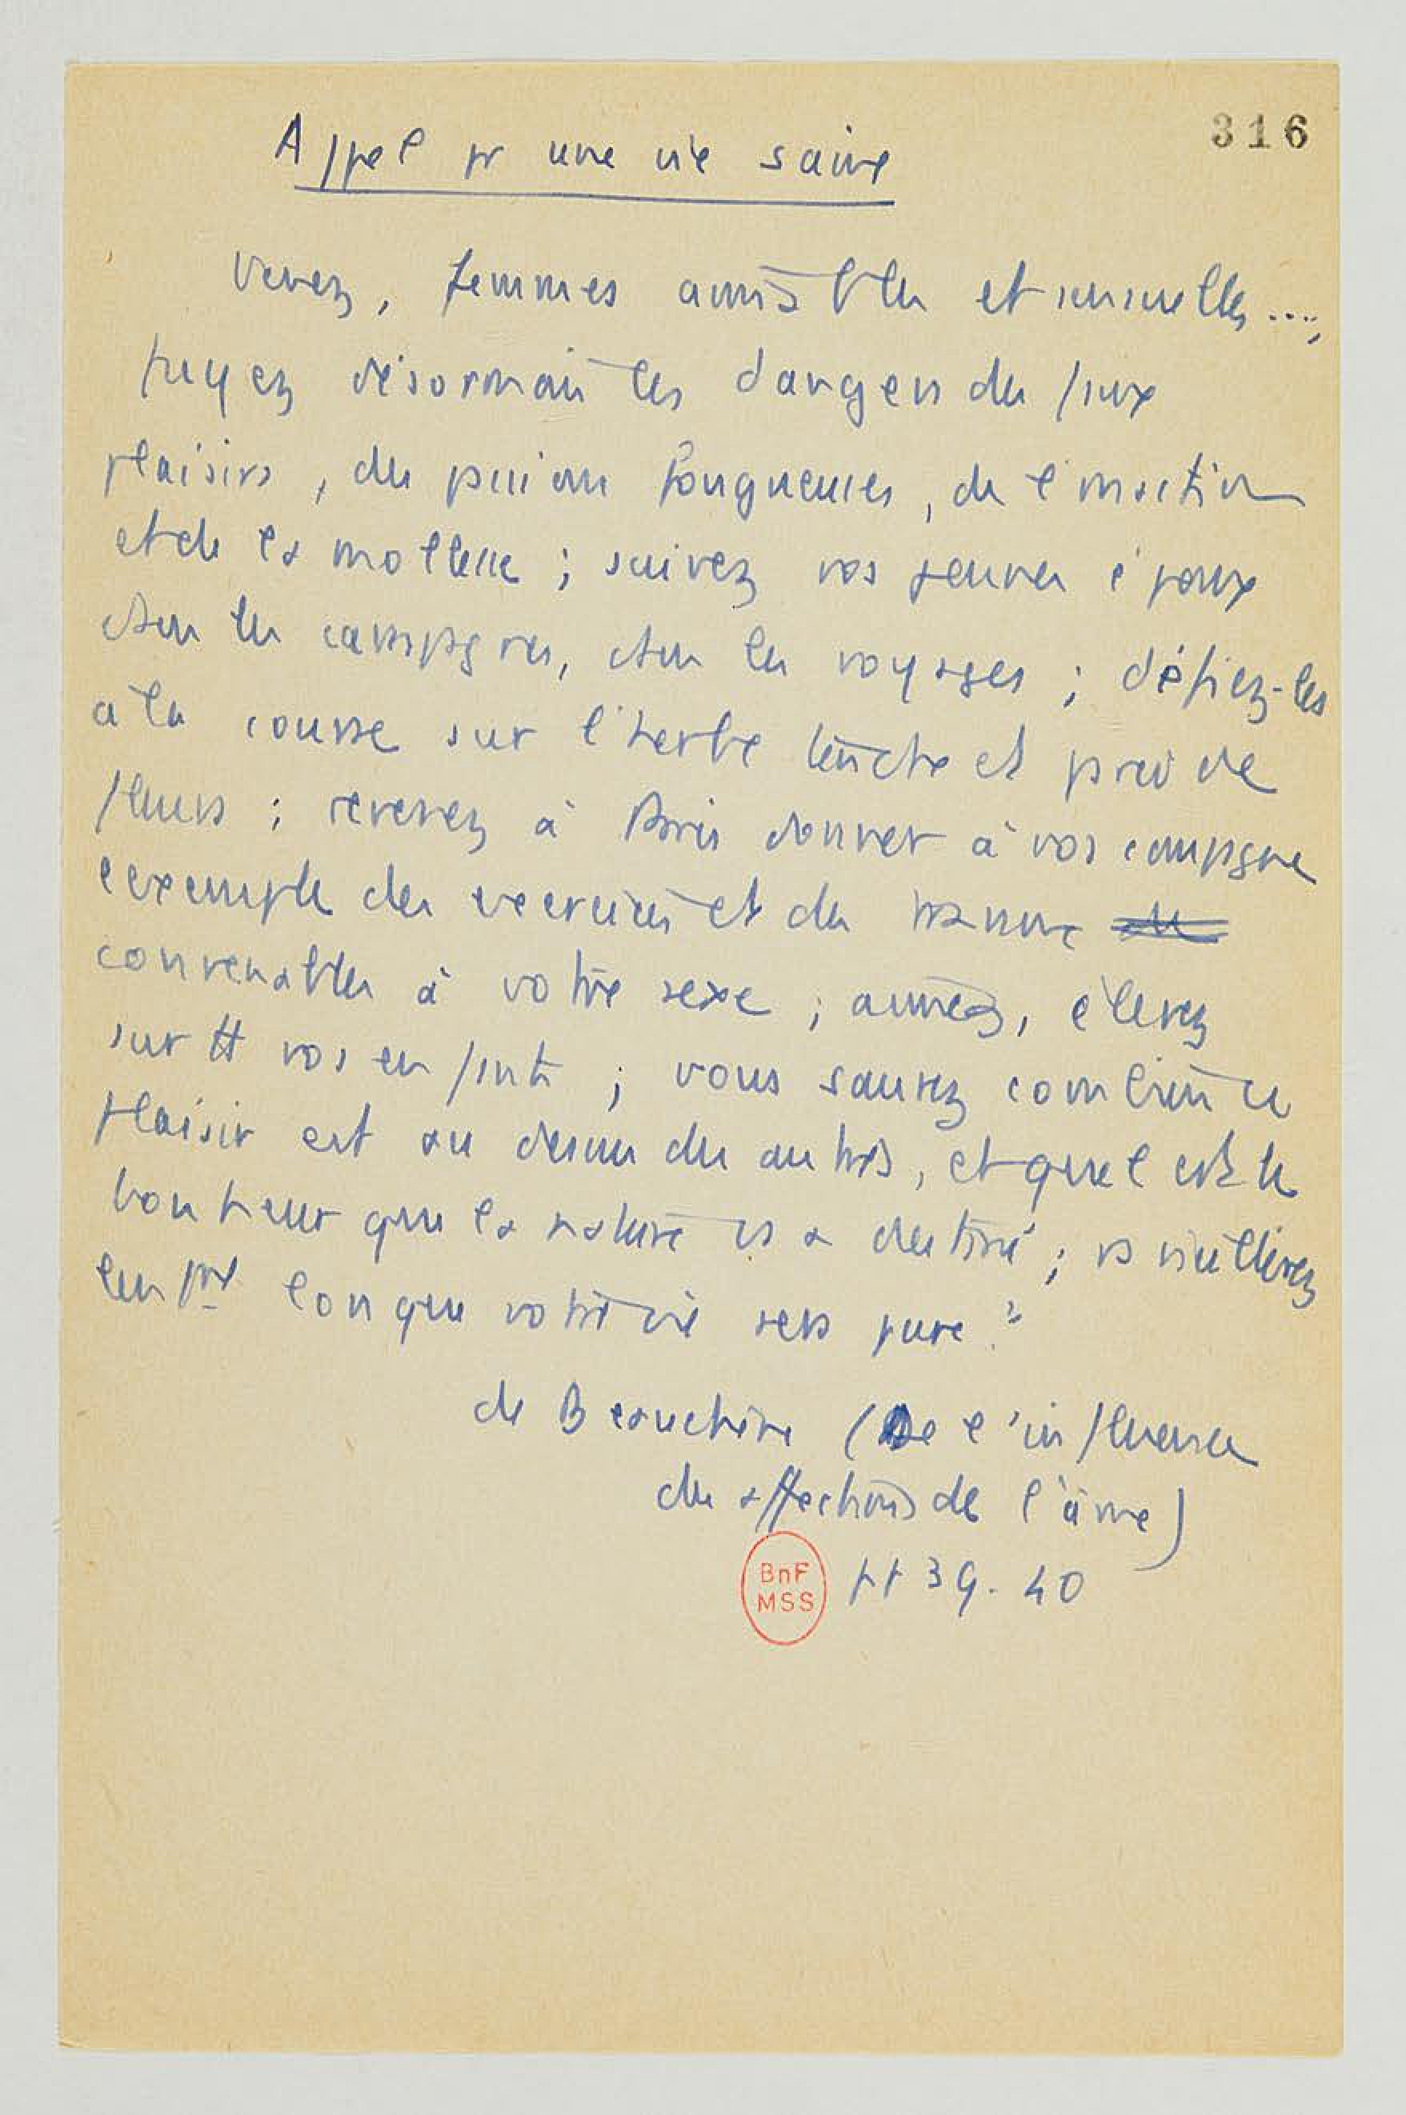 316
Appel pr une vie saine
Venez, femmes aimables et sensuelles ....,
fuyez désormais les dangers des faux
plaisirs, des passions fougueuses, de l'inaction
et de la mollesse ; suivez vos jeunes époux
dans les campagnes, dans les voyages ; défiez-les
à la course sur l'herbe tendre et parée de
fleurs ; revenez à Paris donner à vos compagnes
l'exemple des exercices et des travaux
convenables à votre sexe ; aimez, élevez
surtt vos enfants ; vous saurez combien ce
plaisir est au dessus des autres, et que c'est le
bonheur que la nature vs a destiné ; vs vieillirez
lentmt lorsque votre vie sera pure."
de Beauchêne (De l'influence
des affections de l'âme)
BnF
MSS
pp 39-40